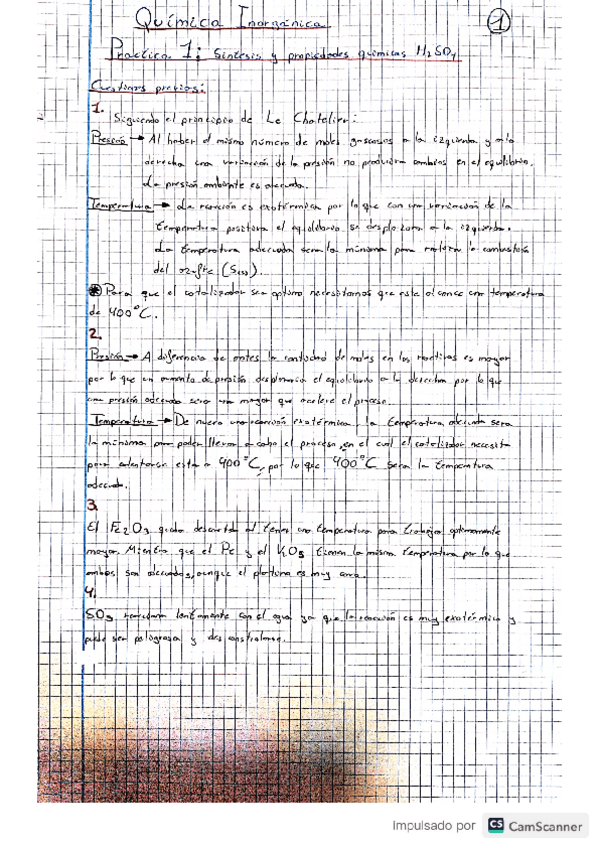 Química Inorgánica
1
Práctica 1: Síntesis y propiedades químicas H2SO4
Cuestiones previas:
1.
Siguiendo el principio de Le Chatelier:
Presión → Al haber el mismo número de moles gaseosos a la izquierda y a la
derecha una variación de la presión no produciría cambios en el equilibrio.
La presión ambiente es adecuada.
Temperatura → La reacción es exotérmica por lo que con una variación de la
temperatura positiva el equilibrio se desplazara a la izquierda.
La temperatura adecuada sera la mínima para la combustión
del azufre (S(s)).
Para que el catalizador sea optimo necesitamos que este alcance una temperatura
de 400°C.
2.
Presión → A diferencia de antes la cantidad de moles en los reactivos es mayor
por lo que un aumento de presión desplazaria el equilibrio a la derecha por lo que
una presión adecuada sera una mayor que acelere el proceso.
Temperatura → De nuevo una reacción exotérmica, la temperatura adecuada sera
la mínima para poder llevar a cabo el proceso, en el cual el catalizador necesita
para calentarse esta a 400°C, por lo que 400°C sera la temperatura
adecuada.
3.
El Fe2O3 queda descartado al tener una temperatura para trabajar optimamente
mayor. Mientras que el Pt y el V2O5 tienen la misma temperatura por lo que
ambos son adecuados, aunque el platino es muy caro.
4.
SO3 reacciona lentamente con el agua ya que la reacción es muy exotérmica y
puede ser peligrosa y descontrolarse.
Impulsado por CS CamScanner